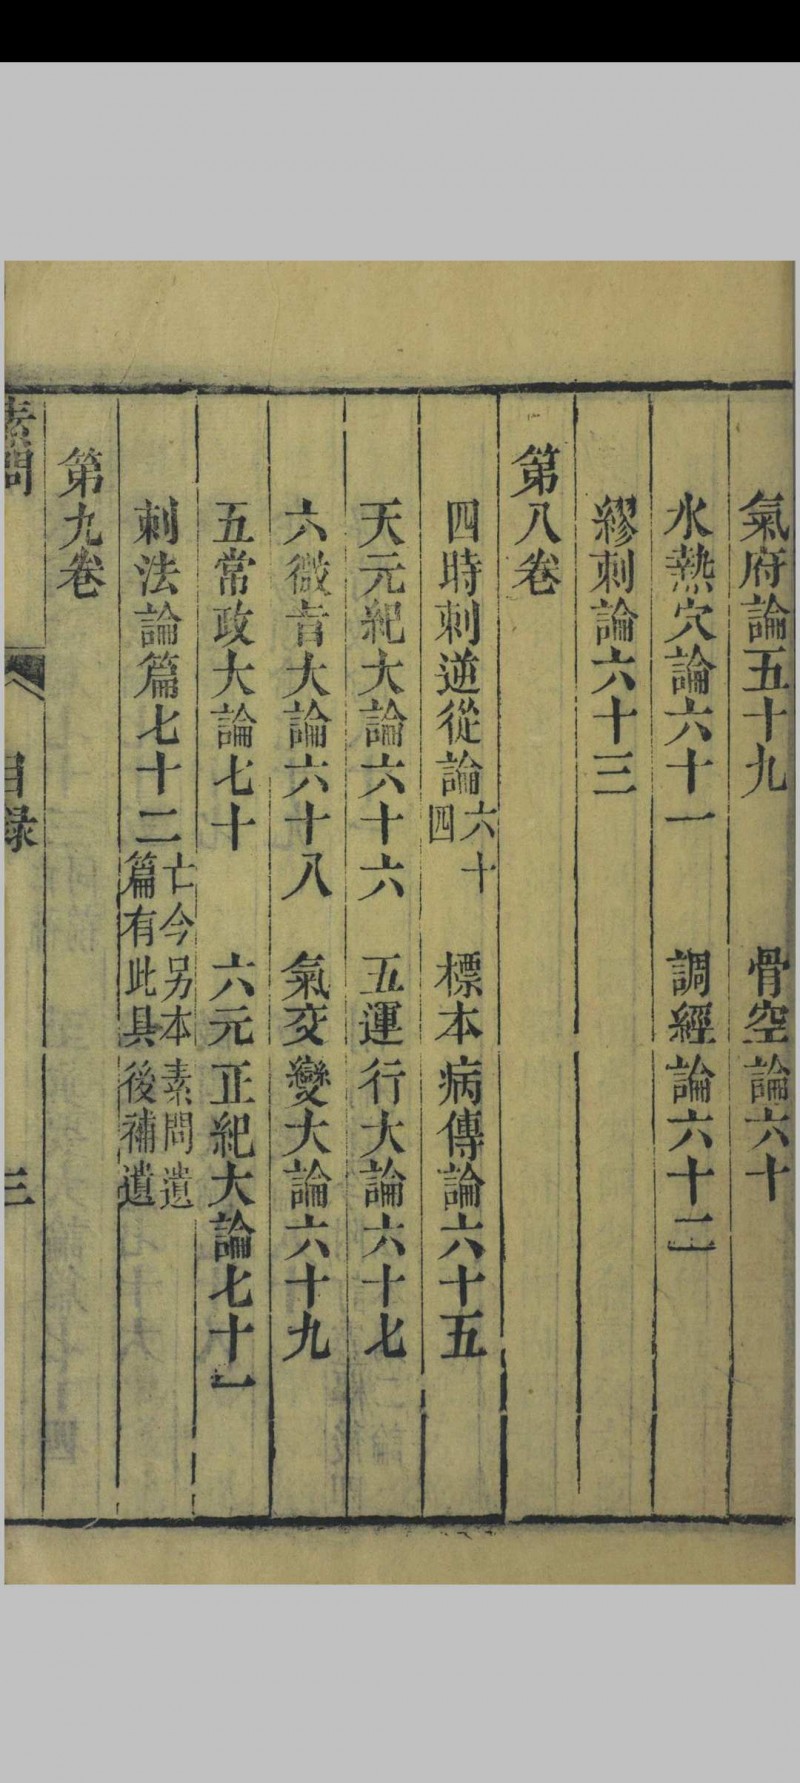 氣府論五十九 骨空論六十
水熱穴論六十一 調經論六十二
繆刺論六十三
第八卷
四時刺逆從論六十四 標本病傳論六十五
天元紀大論六十六 五運行大論六十七
六微旨大論六十八 氣交變大論六十九
五常政大論七十 六元正紀大論七十一
刺法論篇七十二亡今另本素問遺篇有此具後補遺
第九卷
素問 目録 三